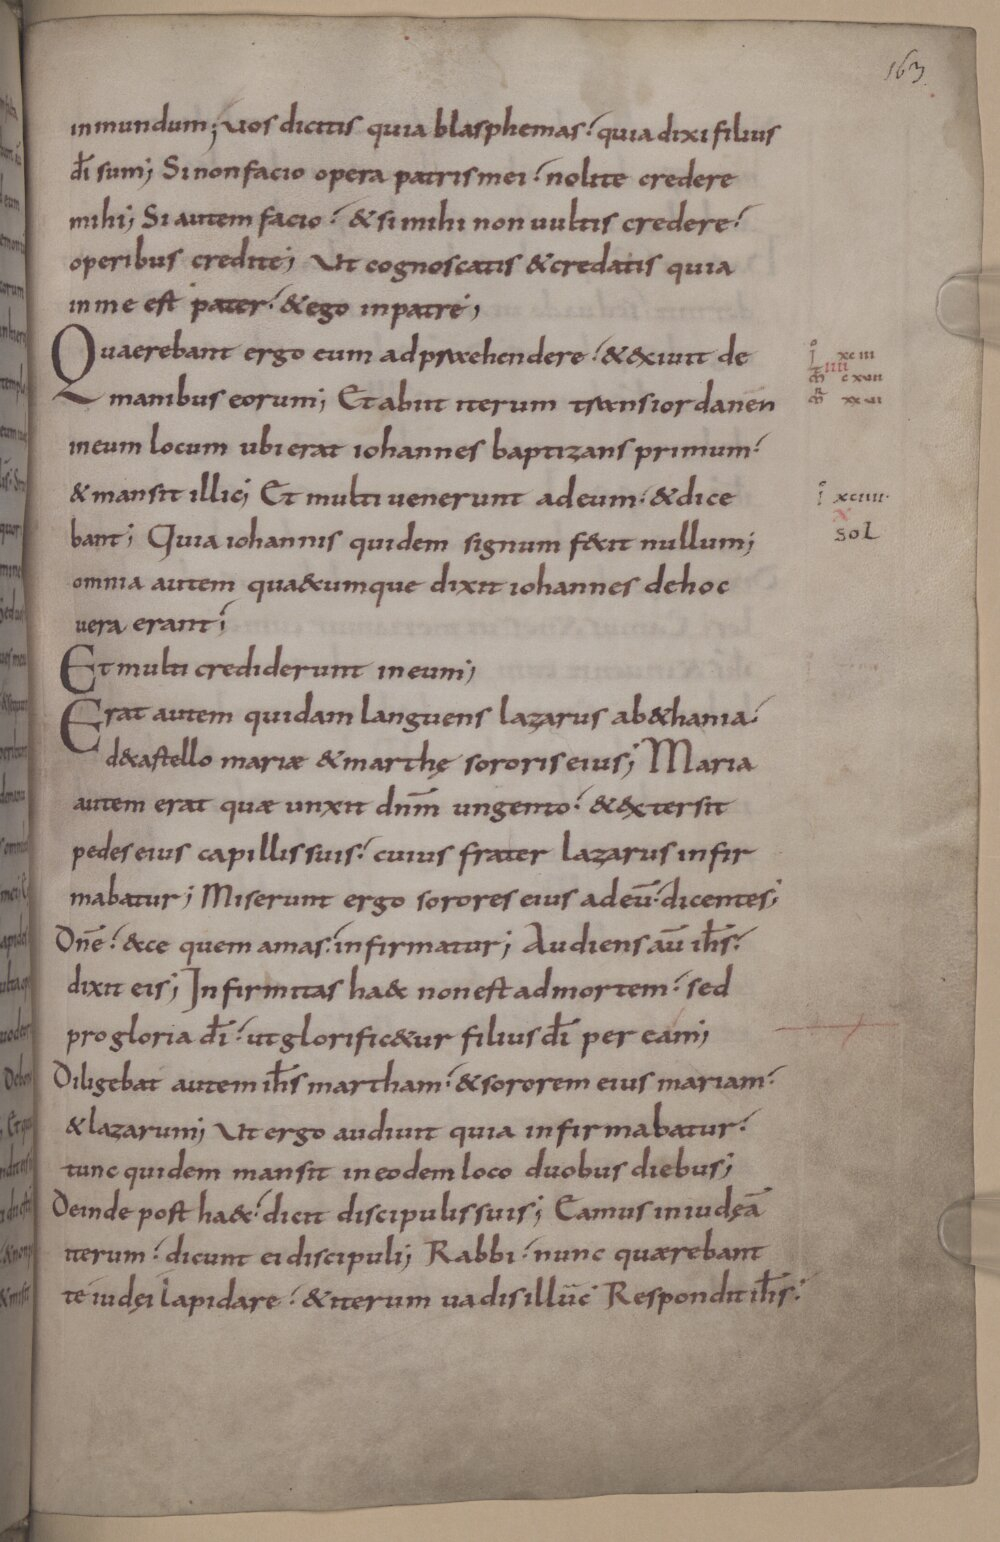 163
inmundum; uos dicitis quia blasphemas: quia dixi filius
dī sum; Si non facio opera patris mei: nolite credere
mihi; Si autem facio: & si mihi non uultis credere:
operibus credite; Ut cognoscatis & credatis quia
in me est pater: & ego in patre;
Quaerebant ergo eum adpraehendere: & exiuit de
manibus eorum; Et abiit iterum trans iordanen
in eum locum ubi erat iohannes baptizans primum:
& mansit illic; Et multi uenerunt ad eum: & dice
bant; Quia iohannis quidem signum fecit nullum;
omnia autem quaecumque dixit iohannes de hoc
uera erant;
Et multi crediderunt in eum;
Erat autem quidam languens lazarus a b&hania:
de castello mariæ & marthę sororis eius; Maria
autem erat quæ unxit dnm̄ ungento: & extersit
pedes eius capillis suis: cuius frater lazarus infir
mabatur; Miserunt ergo sorores eius ad eū: dicentes;
Dnē: ecce quem amas: infirmatur; Audiens aū ih̄s:
dixit eis; Infirmitas haec non est ad mortem: sed
pro gloria dī: ut glorific&ur filius dī per eam;
Diligebat autem ih̄s martham: & sororem eius mariam:
& lazarum; Ut ergo audiuit quia infirmabatur:
tunc quidem mansit in eodem loco duobus diebus;
Deinde post haec: dicit discipulis suis; Eamus in iudęā
iterum: dicunt ei discipuli; Rabbi: nunc quærebant
te iudęi lapidare: & iterum uadis illuc; Respondit ih̄s:
xciii
iiii
cxvii
xciiii
x
sol